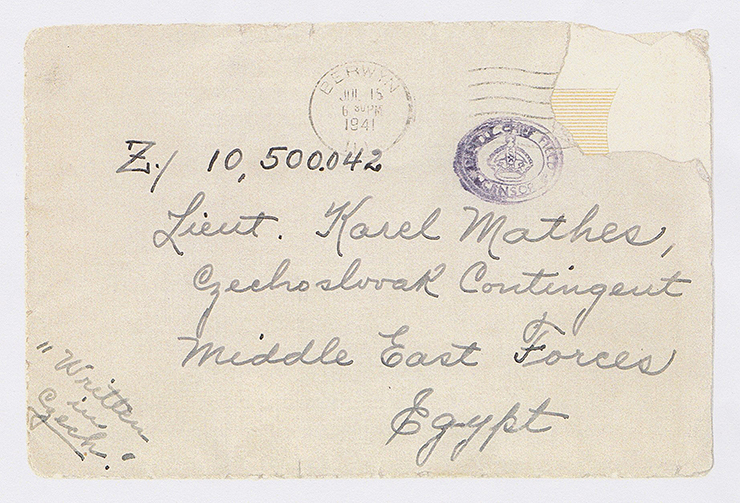 BERWYN
JUL 15
6 30 PM
1941
Z./ 10,500.042
DEPUTY CHIEF FIELD CENSOR
Lieut. Karel Mathes,
Czechoslovak Contingent
Middle East Forces
Egypt
"Written
in
Czech."